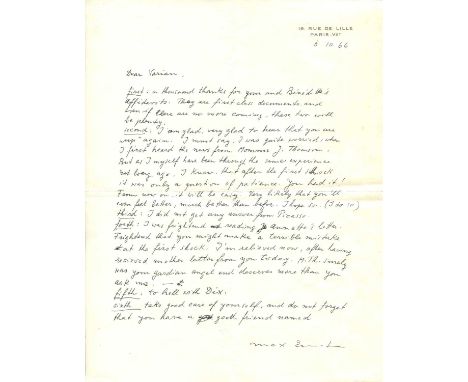 19, RUE DE LILLE
PARIS-VIIe
5 10 66
Dear Varian,
first: a thousand thanks for your and Bénédite's
affidavits. They are first class documents and
even if there are no more coming, these two will
be plenty.
second: I am glad, very glad to hear that you are
up again. I must say I was quite worried when
I first heard the news from Monsieur J. Thomson.
But as I myself have been through the same experience
not long ago, I know that after the first shock
it was only a question of patience. You had it!
From now on it will be easy. Very likely that you'll
even feel better, much better than before. I hope so. (I do so)
third: I did not get any answer from Picasso
forth: I was frightened reading Annette's letter.
Frightened that you might make a terrible mistake
at the first shock. I'm relieved now, after having
received another letter from you today. M. Th. surely
was your gardian angel and deserves more than you
ask me.
fifth: to hell with Dix.
sixth take good care of yourself, and do not forget
that you have a good friend named
max Ernst